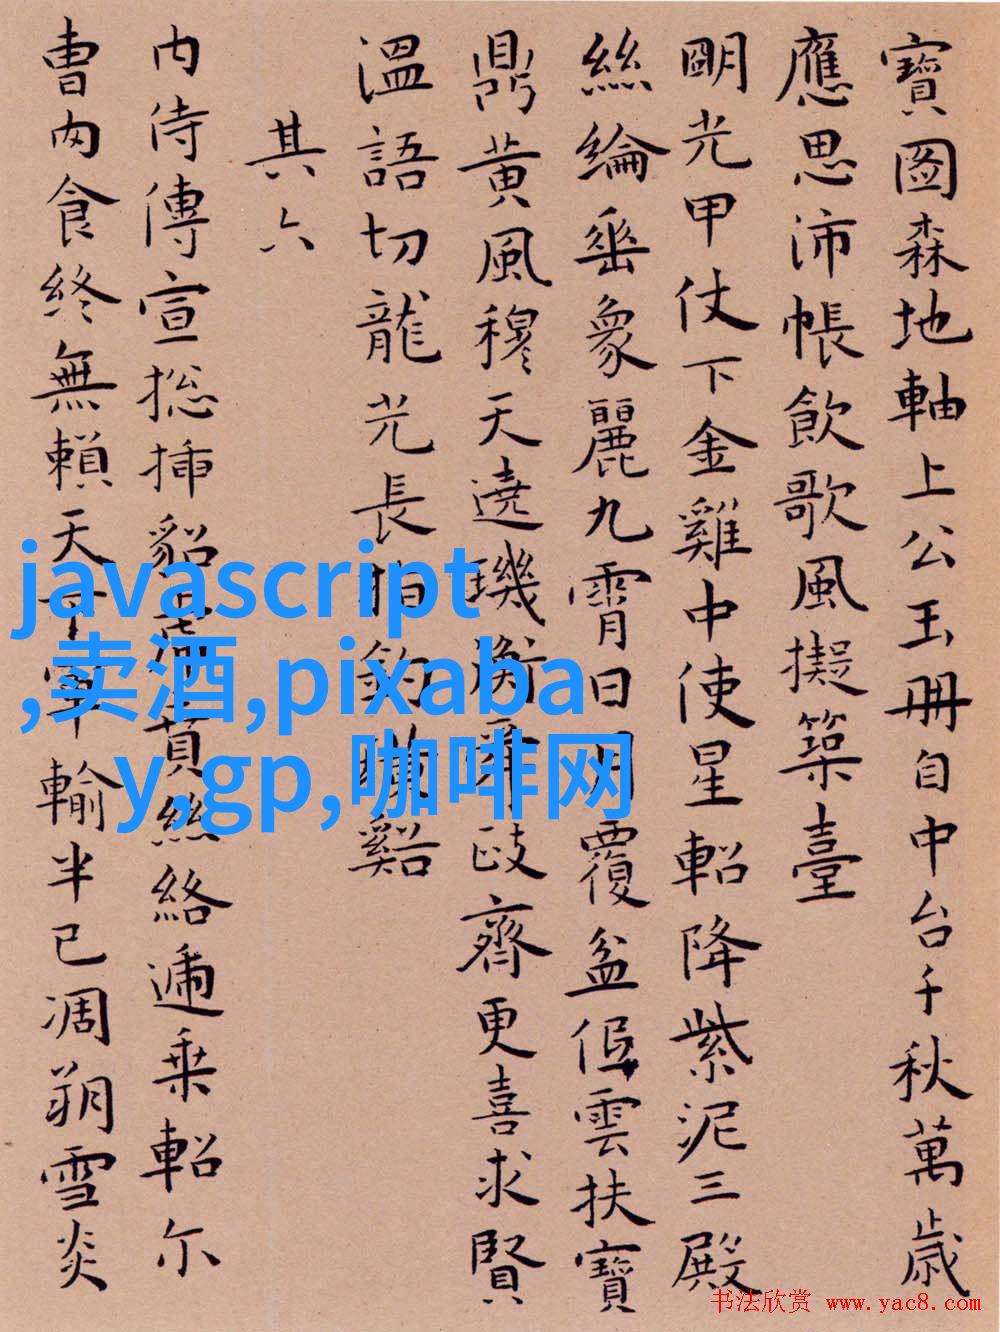 寶圖森地軸上公玉冊自中台千秋萬歲
應思沛帳飲歌風擬築臺
朙光甲仗下金雞中使星軺降紫泥三殿
絲綸垂象麗九霄日月覆盆低雲扶寶
鼎黃風穆天遶璣衡舜歧齊更喜求賢
溫語切龍光長拍釣璜谿
其六
内侍傳宣捴插貂絲絡逓乘軺尔
曹肉食終無賴天下軍輸半已凋朔雪炎
javascript
,卖酒,pixaba
y,gp,咖啡网
书法欣赏 www.yac8.com